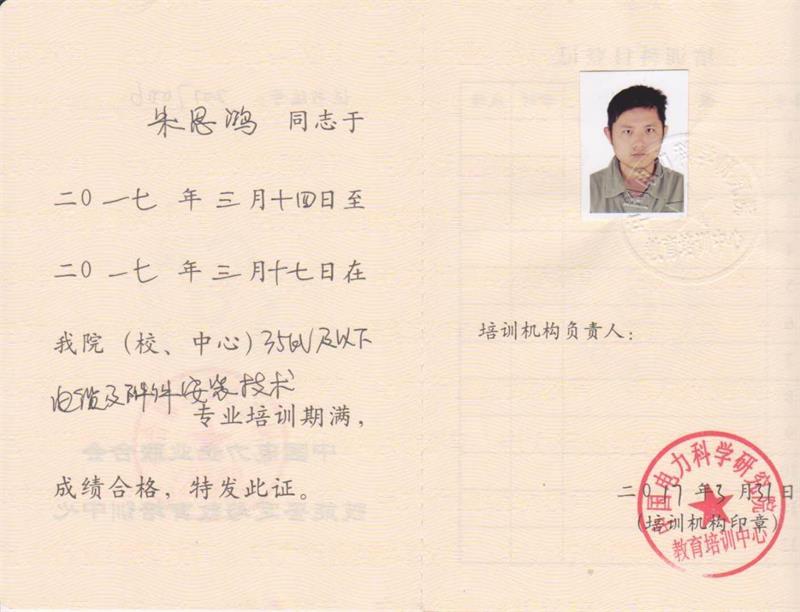 朱恩鸿 同志于
二〇一七 年 三 月十四日至
二〇一七 年 三 月十七日在
我院（校、中心）35kV及以下
电缆及附件安装技术
专业培训期满，
成绩合格，特发此证。
培训机构负责人：
二〇17年3月31日
（培训机构印章）
中国电力科学研究院
教育培训中心
教育培训中心